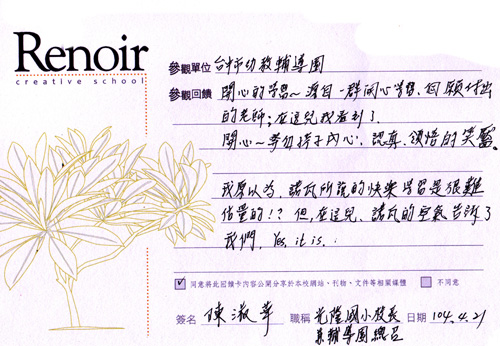 Renoir
creative school
參觀單位 台中市幼教輔導團
參觀回饋 開心的學習~源自一群開心學習、但願付出
的老師；在這兒我看到了.
開心~等勿待于內心、認真、領悟的笑靨。
我原以為, 諾瓦所說的快樂學習是很難
估量的!? 但, 在這兒, 諾瓦的空氣告訴了
我們, Yes, it is.
同意將此回饋卡內容公開分享於本校網站、刊物、文件等相關媒體 不同意
簽名 陳淑華 職稱 光隆國小校長 日期 104.4.21
兼輔導團總召